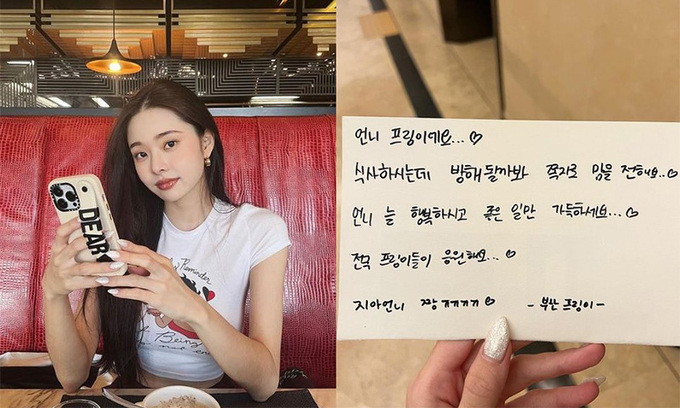 DEAR
Reminder
Being
언니 프링이에요...♡
식사하시는데 방해될까봐 쪽지로 맘을 전해요..♡
언니 늘 행복하시고 좋은 일만 가득하세요...♡
전국 프링이들이 응원해요...♡
지아언니 짱 ㅠㅠㅠㅠ♡ - 부산 프링이 -